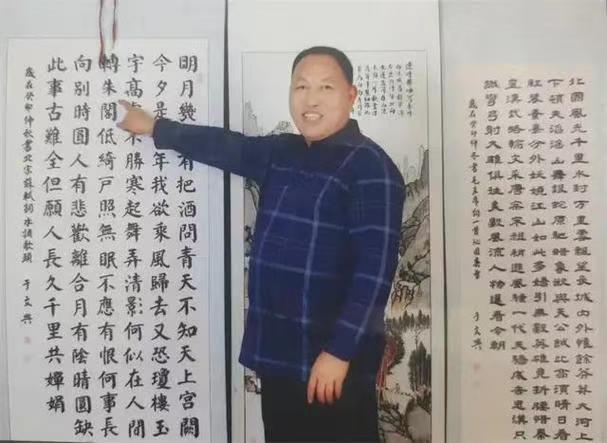 北國風光千里冰封万里雪飄望長城内外惟餘莽莽大河上
下頓失滔滔山舞銀蛇原馳蠟象欲與天公試比高須晴日看
紅裝素裹分外妖嬈江山如此多嬌引無數英雄競折腰惜秦
皇漢武略輸文采唐宗宋祖稍遜風騷一代天驕成吉思漢只
識弯弓射大雕俱往矣數風流人物還看今朝
歲在癸卯仲冬書毛主席詞一首沁園春雪
明月幾有把酒問青天不知天上宫闕
今夕是年我欲乘風歸去又恐瓊樓玉
宇高處不勝寒起舞弄清影何似在人間
轉朱閣低綺戶照無眠不應有恨何事長
向别時圓人有悲歡離合月有陰晴圓缺
此事古難全但願人長久千里共嬋娟
歲在癸卯仲秋書北宋蘇軾詞水調歌頭